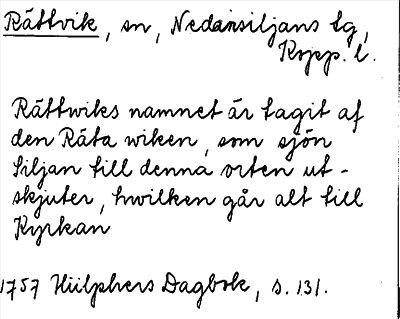 Rättvik, sn, Nedansiljans tg,
Kopp. l.
Rättwiks namnet är tagit af
den Räta wiken, som sjön
Siljan till denna orten ut-
skjuter, hwilken går alt till
Kyrkan
1757 Hülphers Dagbok, s. 131.